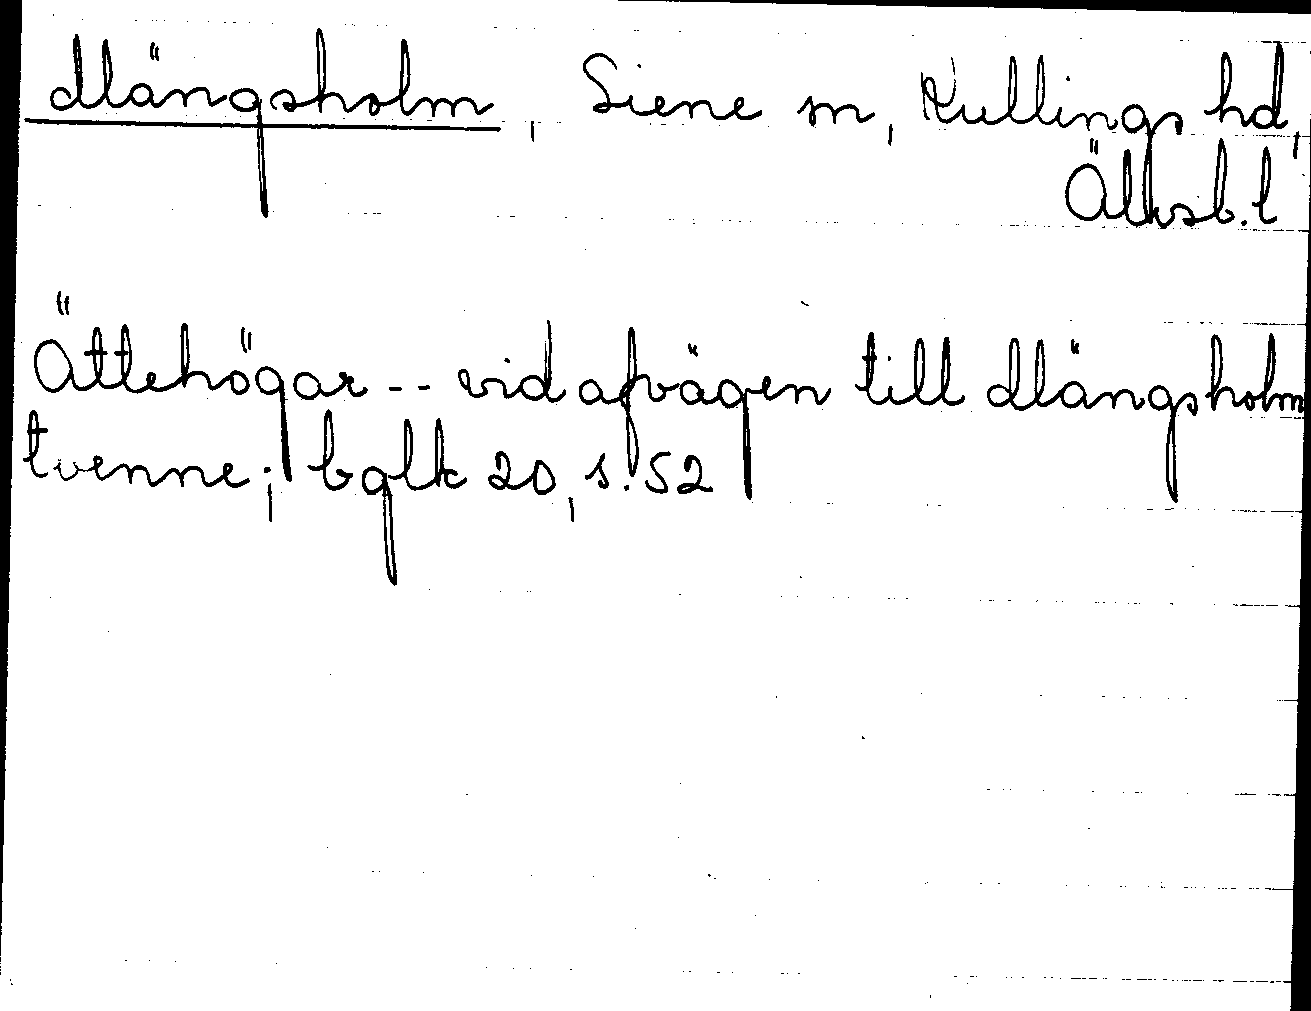 Mängsholm, Siene sn, Kullings hd,
Älvsb. l
Ättehögar -- vid afvägen till Mängsholm
tvenne; bglk 20, s. 52